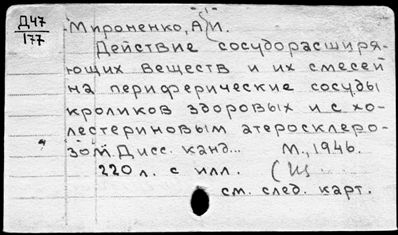 Д47
177
Мироненко, А.И.
Действие сосудорасширя-
ющих веществ и их смесей
на периферические сосуды
кроликов здоровых и с хо-
лестериновым атеросклеро-
зом. Дисс. канд... М., 1946.
220 л. с илл. (Из
см. след. карт.